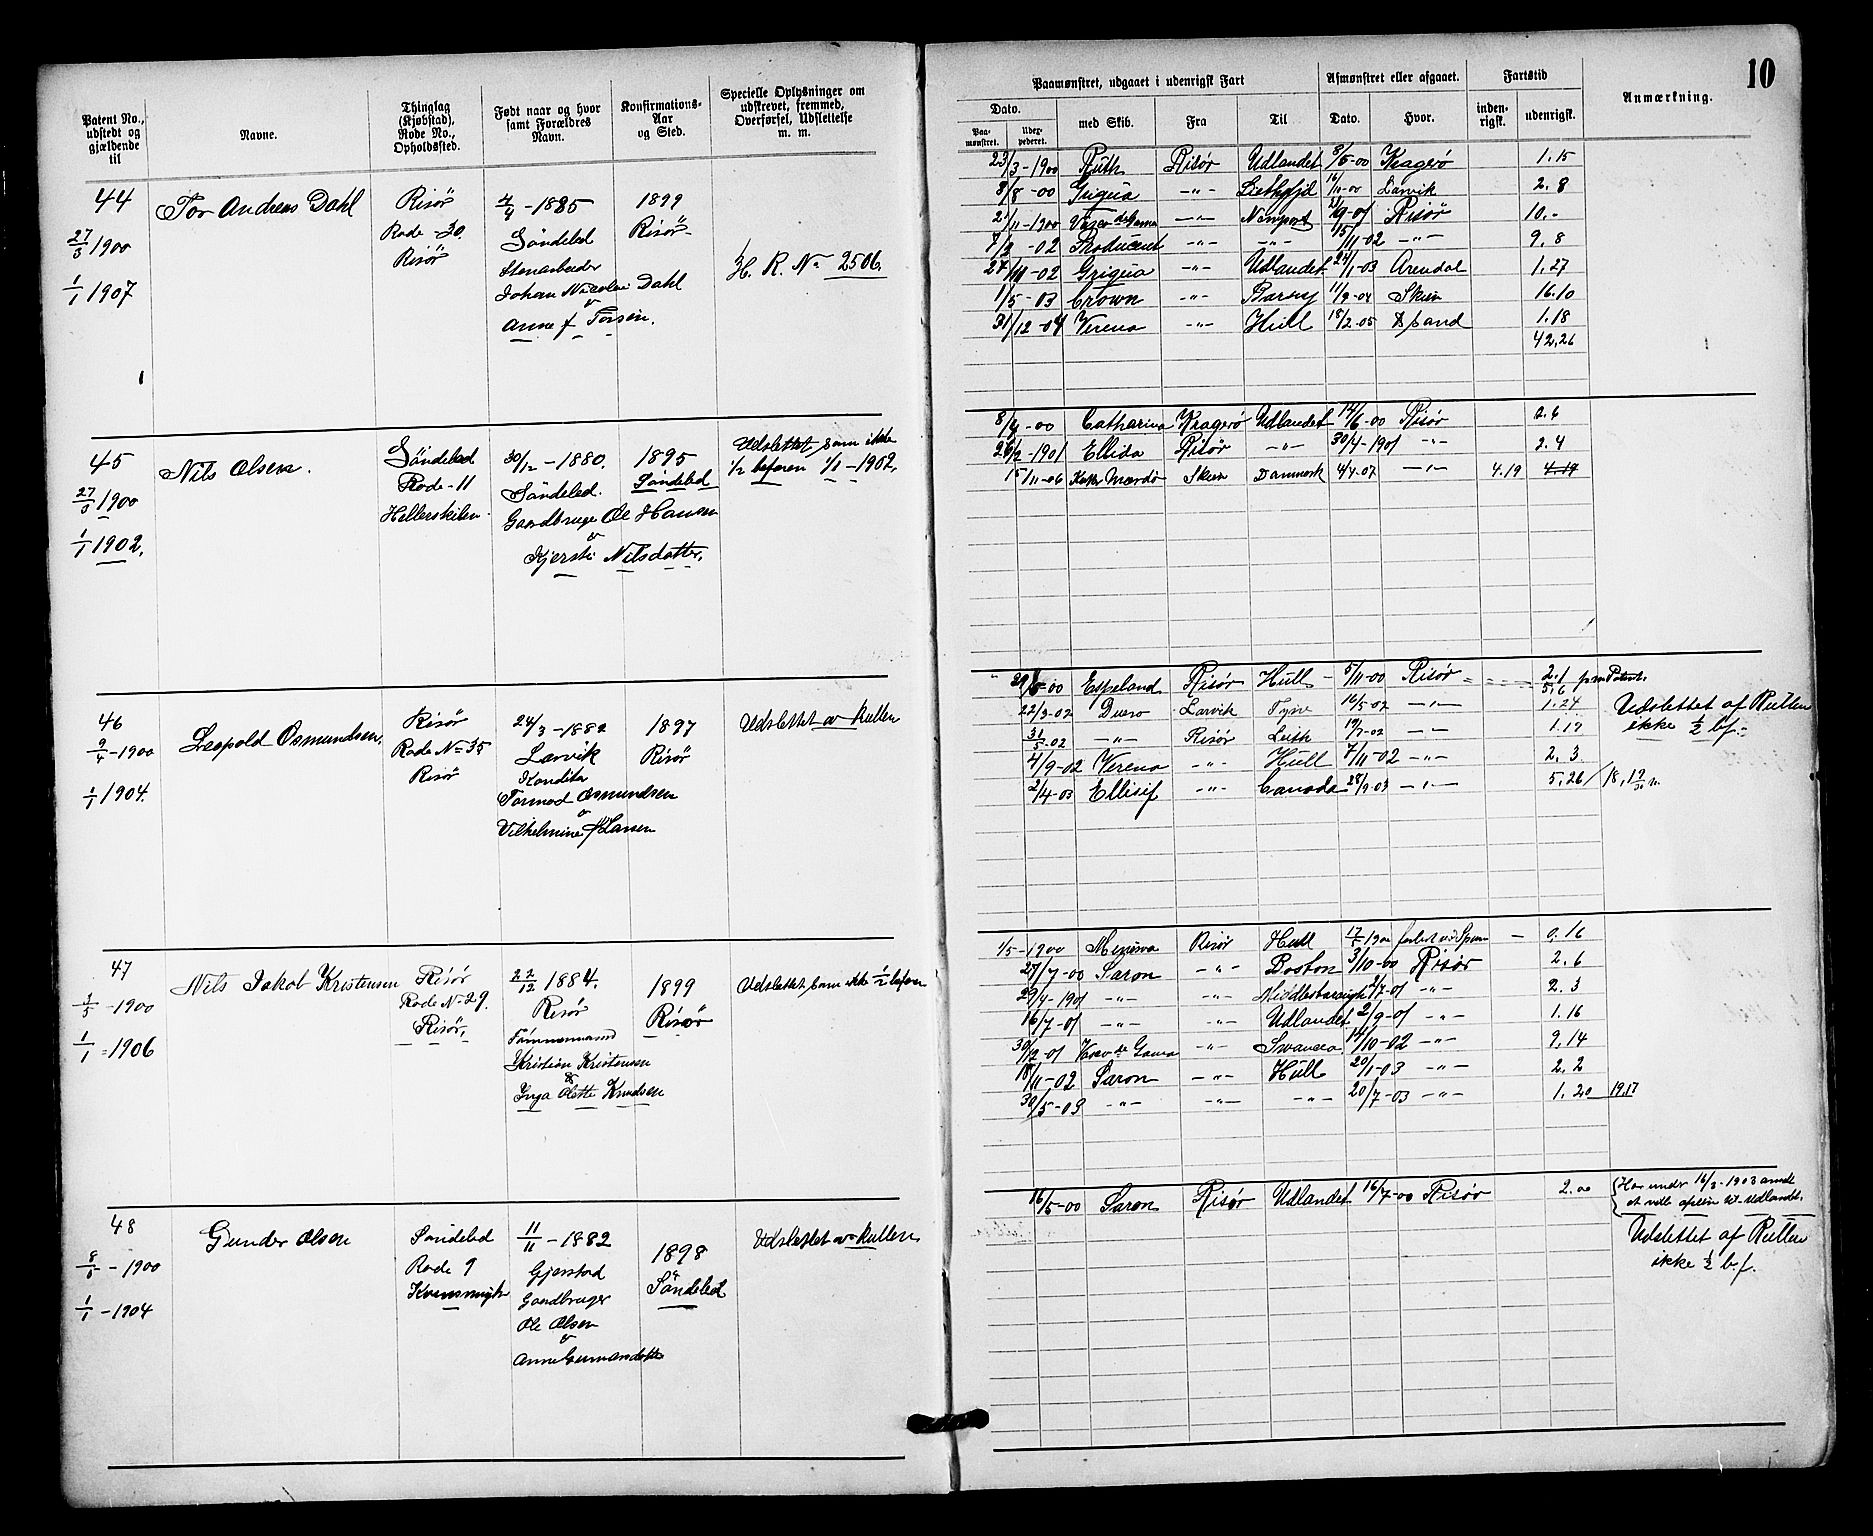 10
Patent No., udstedt og gjældende til
Navne.
Thinglag (Kjøbstad), Rode No., Opholdssted.
Født naar og hvor samt Forældres Navn.
Konfirmations-Aar og Sted.
Specielle Oplysninger om udskrevet, fremmed, Overførsel, Udslettelse m. m.
Paamønstret, udgaaet i udenrigsk Fart
Dato.
Paamønstret.
med Skib.
Fra
Til
Afmønstret eller afgaaet.
Dato.
Hvor.
Fartstid
indenrigsk.
udenrigsk.
Anmærkning.
44
27/3 1900
1/1 1907
Tor Andreas Dahl
Risör
Rode - 30.
Risör
- 1885
Söndeled
Stenarbeider
Johan Nicolai Dahl
Anne f Torsen.
1899
Risör
H. R. No 2506.
23/3-1900 Ruth Risör Udlandet 8/5-00 Kragerö 1.15
8/8-00 Griqua -"- 16/11-00 Larvik 2.8
2/11-1900 Vasco de Gama -"- Newport 21/9-01 Risør 10.-
7/2-02 Producent -"- -"- 15/11-02 -"- 9.8
27/11-02 Griqua -"- Udlandet 24/1-03 Arendal 1.27
1/5-03 Crown -"- Barry 11/9-04 Skien 16.10
31/12-04 Verena -"- Hull 18/2-05 1.18
42.26
45
27/3 1900
1/1 1902.
Nils Olsen.
Söndeled
Rode - 11
Hellerskilen
30/12 - 1880.
Söndeled.
Gaardbruger Ole Hansen
Kjersti Nilsdatter.
1895
Söndeled
Udslettet som ikke
1/2 befaren 1/1 - 1902.
8/4-00 Catharina Kragerö Udlandet 14/6-00 Risør 2.6
26/2-1901 Ellida Risør -"- 30/4-1901 -"- 2.4
15/11-06 Mærdö Skien Danmark 4/4-07 -"- 4.19 4.19
46
9/4-1900
1/1 1904.
Leopold Osmundsen.
Risör
Rode No 35
Risör
24/3-1882
Larvik
Konditor
Tormod Osmundsen
Vilhelmine f Larsen
1897
Risör
Udslettet av Rullen
29/8-00 Espeland Risör Hull - 5/11-00 Risør 2.1
5.6
22/3-02 Duero Larvik Tyne 16/5-02 -"- 1.24
31/5-02 -"- Risør Leith 19/7-02 -"- 1.19
4/9-02 Verena -"- Hull 7/11-02 -"- 2.3
2/4-03 Ellisif -"- Canada 28/9-03 -"- 5.26 / 18.19/30 m.
Udslettet af Rullen
ikke 1/2 bf.
47
3/5-1900
1/1-1906
Nils Jakob Kristensen
Risör
Rode No 29.
Risör.
22/12 1884.
Risör
Tømmermand
Kristian Kristensen
&
Inga Olette Knudsen
1899
Risør
Udslettet som ikke 1/2 befaren
1/5-1900 Minerva Risör Hull 17/5 1900 forlist ved - 0.16
27/7-00 Saron -"- Boston 3/10-00 Risør 2.6
29/4-1901 -"- -"- 2/7-01 -"- 2.3
16/7-01 -"- -"- Udlandet 2/9-01 -"- 1.16
30/12-01 Vasco de Gama -"- Swansea 14/10-02 -"- 9.14
18/11-02 Saron -"- Hull 20/1-03 -"- 2.2
30/5-03 -"- -"- -"- 20/7-03 -"- 1.20 19.17
48
8/5-1900
1/1-1904
Gunder Olsen
Söndeled
Rode 9
11/11-1882
Gjerstad
Gaardbruger
Ole Olsen
1898
Söndeled
Udslettet av Rullen
16/5-00 Saron Risør Udlandet 16/7-00 Risør 2.00
Har under 16/3-1903
Udslettet af Rullen
ikke 1/2 b.f.